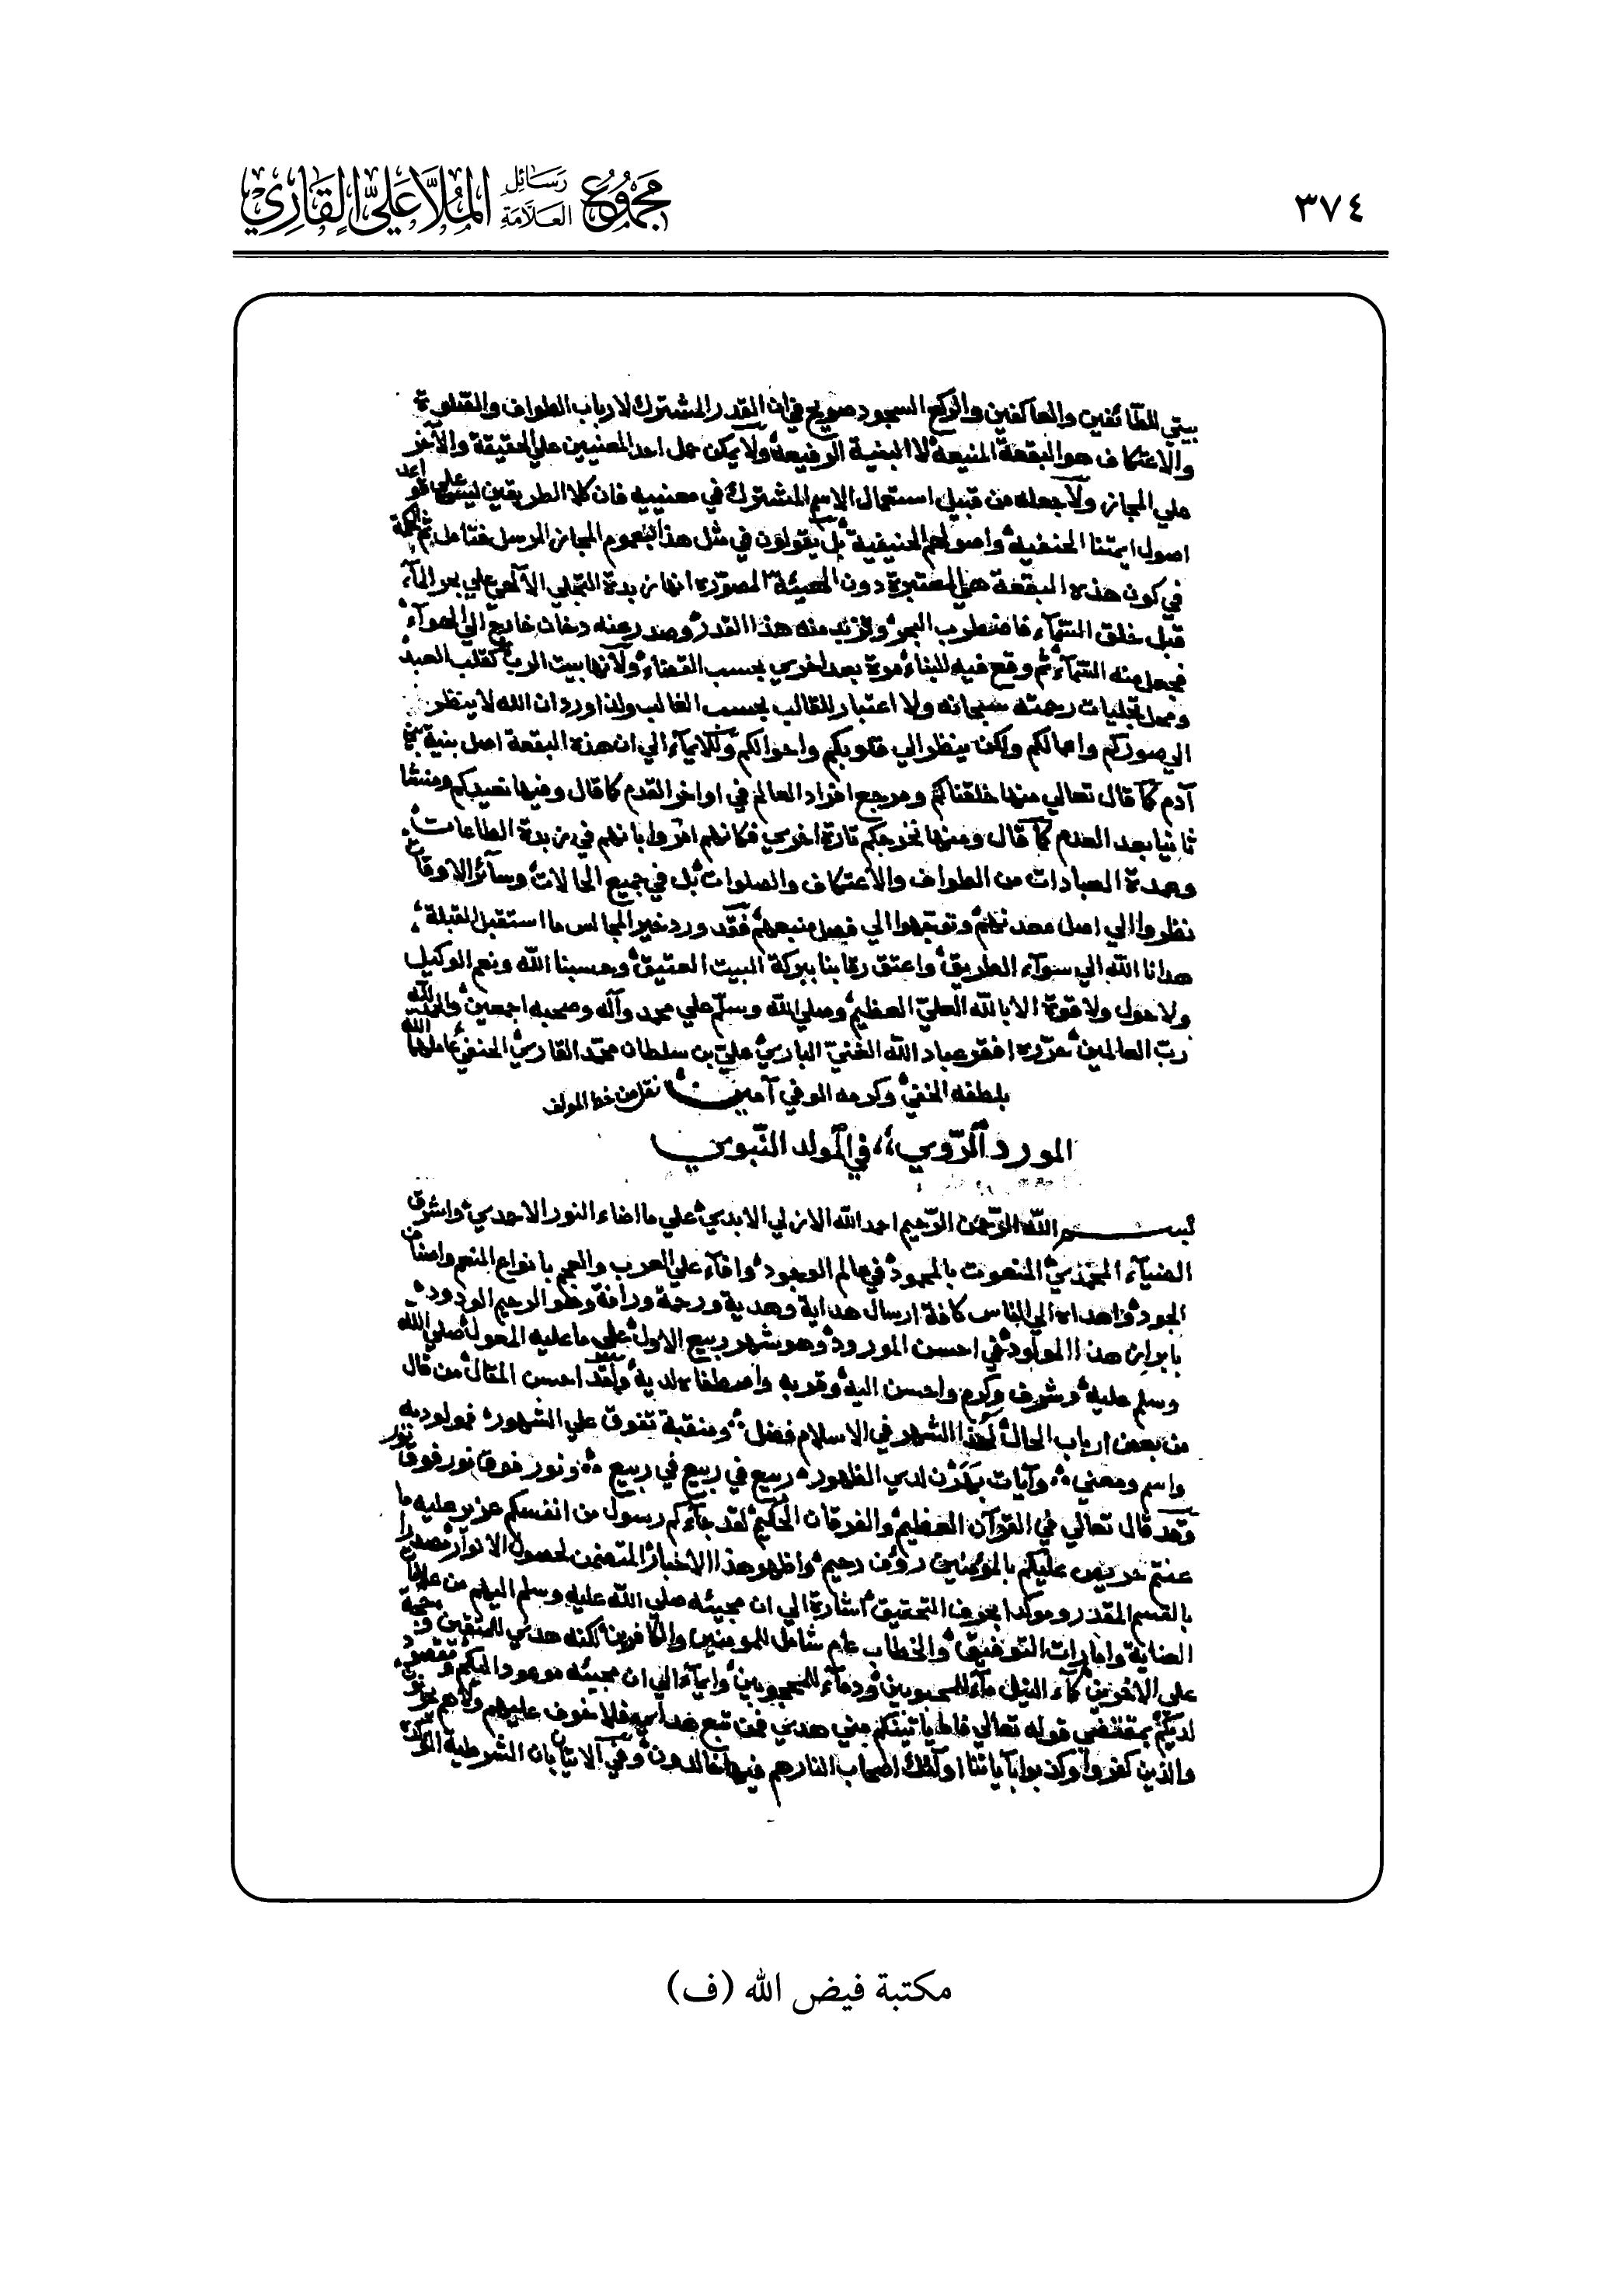 ٣٧٤
مجموع رسائل العلامة الملا علي القاري
بيتي للطائفين والعاكفين والركع السجود صريح في ان القدر المشترك لارباب الطواف والصلوة
والاعتكاف هو البقعة المنيعة لا البنية الرفيعة ولا يمكن حمل احد المعنيين علي الحقيقة والآخر
علي المجاز ولا جعله من قبيل استعمال الاسم المشترك في معنييه فان كلا الطريقين ليس علي قواعد
اصول ايمتنا الحنفية واصولهم الحنيفية بل يقولون في مثل هذا بعموم المجاز المرسل فتامل ثم الحكمة
في كون هذه البقعة هي المعتبرة دون الهيئة المصورة انها زبدة التجلي الالهي علي بحر المآء
قبل خلق السمآء فاضطرب البحر وتزبد منه هذا القدر وصدر عنه دخان خارج الي الهوآء
فجعل منه السمآء ثم وقع فيه البناء مرة بعد اخري بحسب القضاء ولانها بيت الرب كقلب العبد
ومحل تجليات رحمته سبحانه ولا اعتبار للقالب بحسب الغالب ولذا ورد ان الله لا ينظر
الي صوركم واعمالكم ولكن ينظر الي قلوبكم واحوالكم وللايمآء الي ان هذه البقعة اصل بنية بني
آدم كما قال تعالي منها خلقناكم ومرجع افراد العالم في اواخر القدم كما قال وفيها نعيدكم ومنشا
ثانيا بعد العدم كما قال ومنها نخرجكم تارة اخري فكانهم امروا بانهم في زبدة الطاعات
وعمدة العبادات من الطواف والاعتكاف والصلوات بل في جميع الحالات وسآئر الاوقات
نظروا الي اصل معدنهم وتوجهوا الي فصل منبعهم فقد ورد خير المجالس ما استقبل القبلة
هدانا الله الي سوآء الطريق واعتق رقابنا ببركة البيت العتيق وحسبنا الله ونعم الوكيل
ولا حول ولا قوة الا بالله العلي العظيم وصلي الله وسلم علي محمد وآله وصحبه اجمعين والحمد لله
رب العالمين حرره افقر عباد الله الغني الباري علي بن سلطان محمد القاري الحنفي عاملهما الله
بلطفه الخفي وكرمه الوفي آمين نقل من خط المولف
المورد الروي في المولد النبوي
بسم الله الرحمن الرحيم احمد الله الازلي الابدي علي ما اضاء النور الاحمدي واشرق
الضياء المحمدي المنعوت بالمحمود في عالم الوجود وافآء علي العرب والعجم بانواع النعم واصناف
الجود واهداه الي الناس كافة ارسال هداية وهدية ورحمة ورافة وهو الرحيم الودود
بابراز هذا المولود في احسن المورود وهو شهر ربيع الاول علي ما عليه المعول صلي الله
وسلم عليه وشرف وكرم واحسن اليه وقربه واصطفاه لديه ولقد احسن المقال من قال
من بعض ارباب الحال لهذا الشهر في الاسلام فضل ومنقبة تفوق علي الشهور فمولود به
واسم ومعني وآيات بهرن لدي الظهور ربيع في ربيع في ربيع ونور فوق نور فوق نور
وقد قال تعالي في القرآن العظيم والفرقان الحكيم لقد جآءكم رسول من انفسكم عزيز عليه ما
عنتم حريص عليكم بالمؤمنين رؤف رحيم واظهر هذا الاخبار المتضمن لحصول الانوار مصدرا
بالقسم المقدر وموكدا بحرف التحقيق اشارة الي ان مجيئه صلي الله عليه وسلم اليهم من علامات
العناية وامارات التوفيق والخطاب عام شامل للمومنين والكافرين لكنه هدي للمتقين وحجة
علي الاخرين كمآء النيل مآء للمحبوبين ودمآء للمحجوبين وايمآء الي ان مجيئه موعود اليكم ومقصود
لديكم بمقتضي قوله تعالي فاما ياتينكم مني هدي فمن تبع هداي فلا خوف عليهم ولا هم يحزنون
والذين كفروا وكذبوا بآياتنا اولئك اصحاب النار هم فيها خالدون وفي الاتيان بان الشرطية
مكتبة فيض الله (ف)